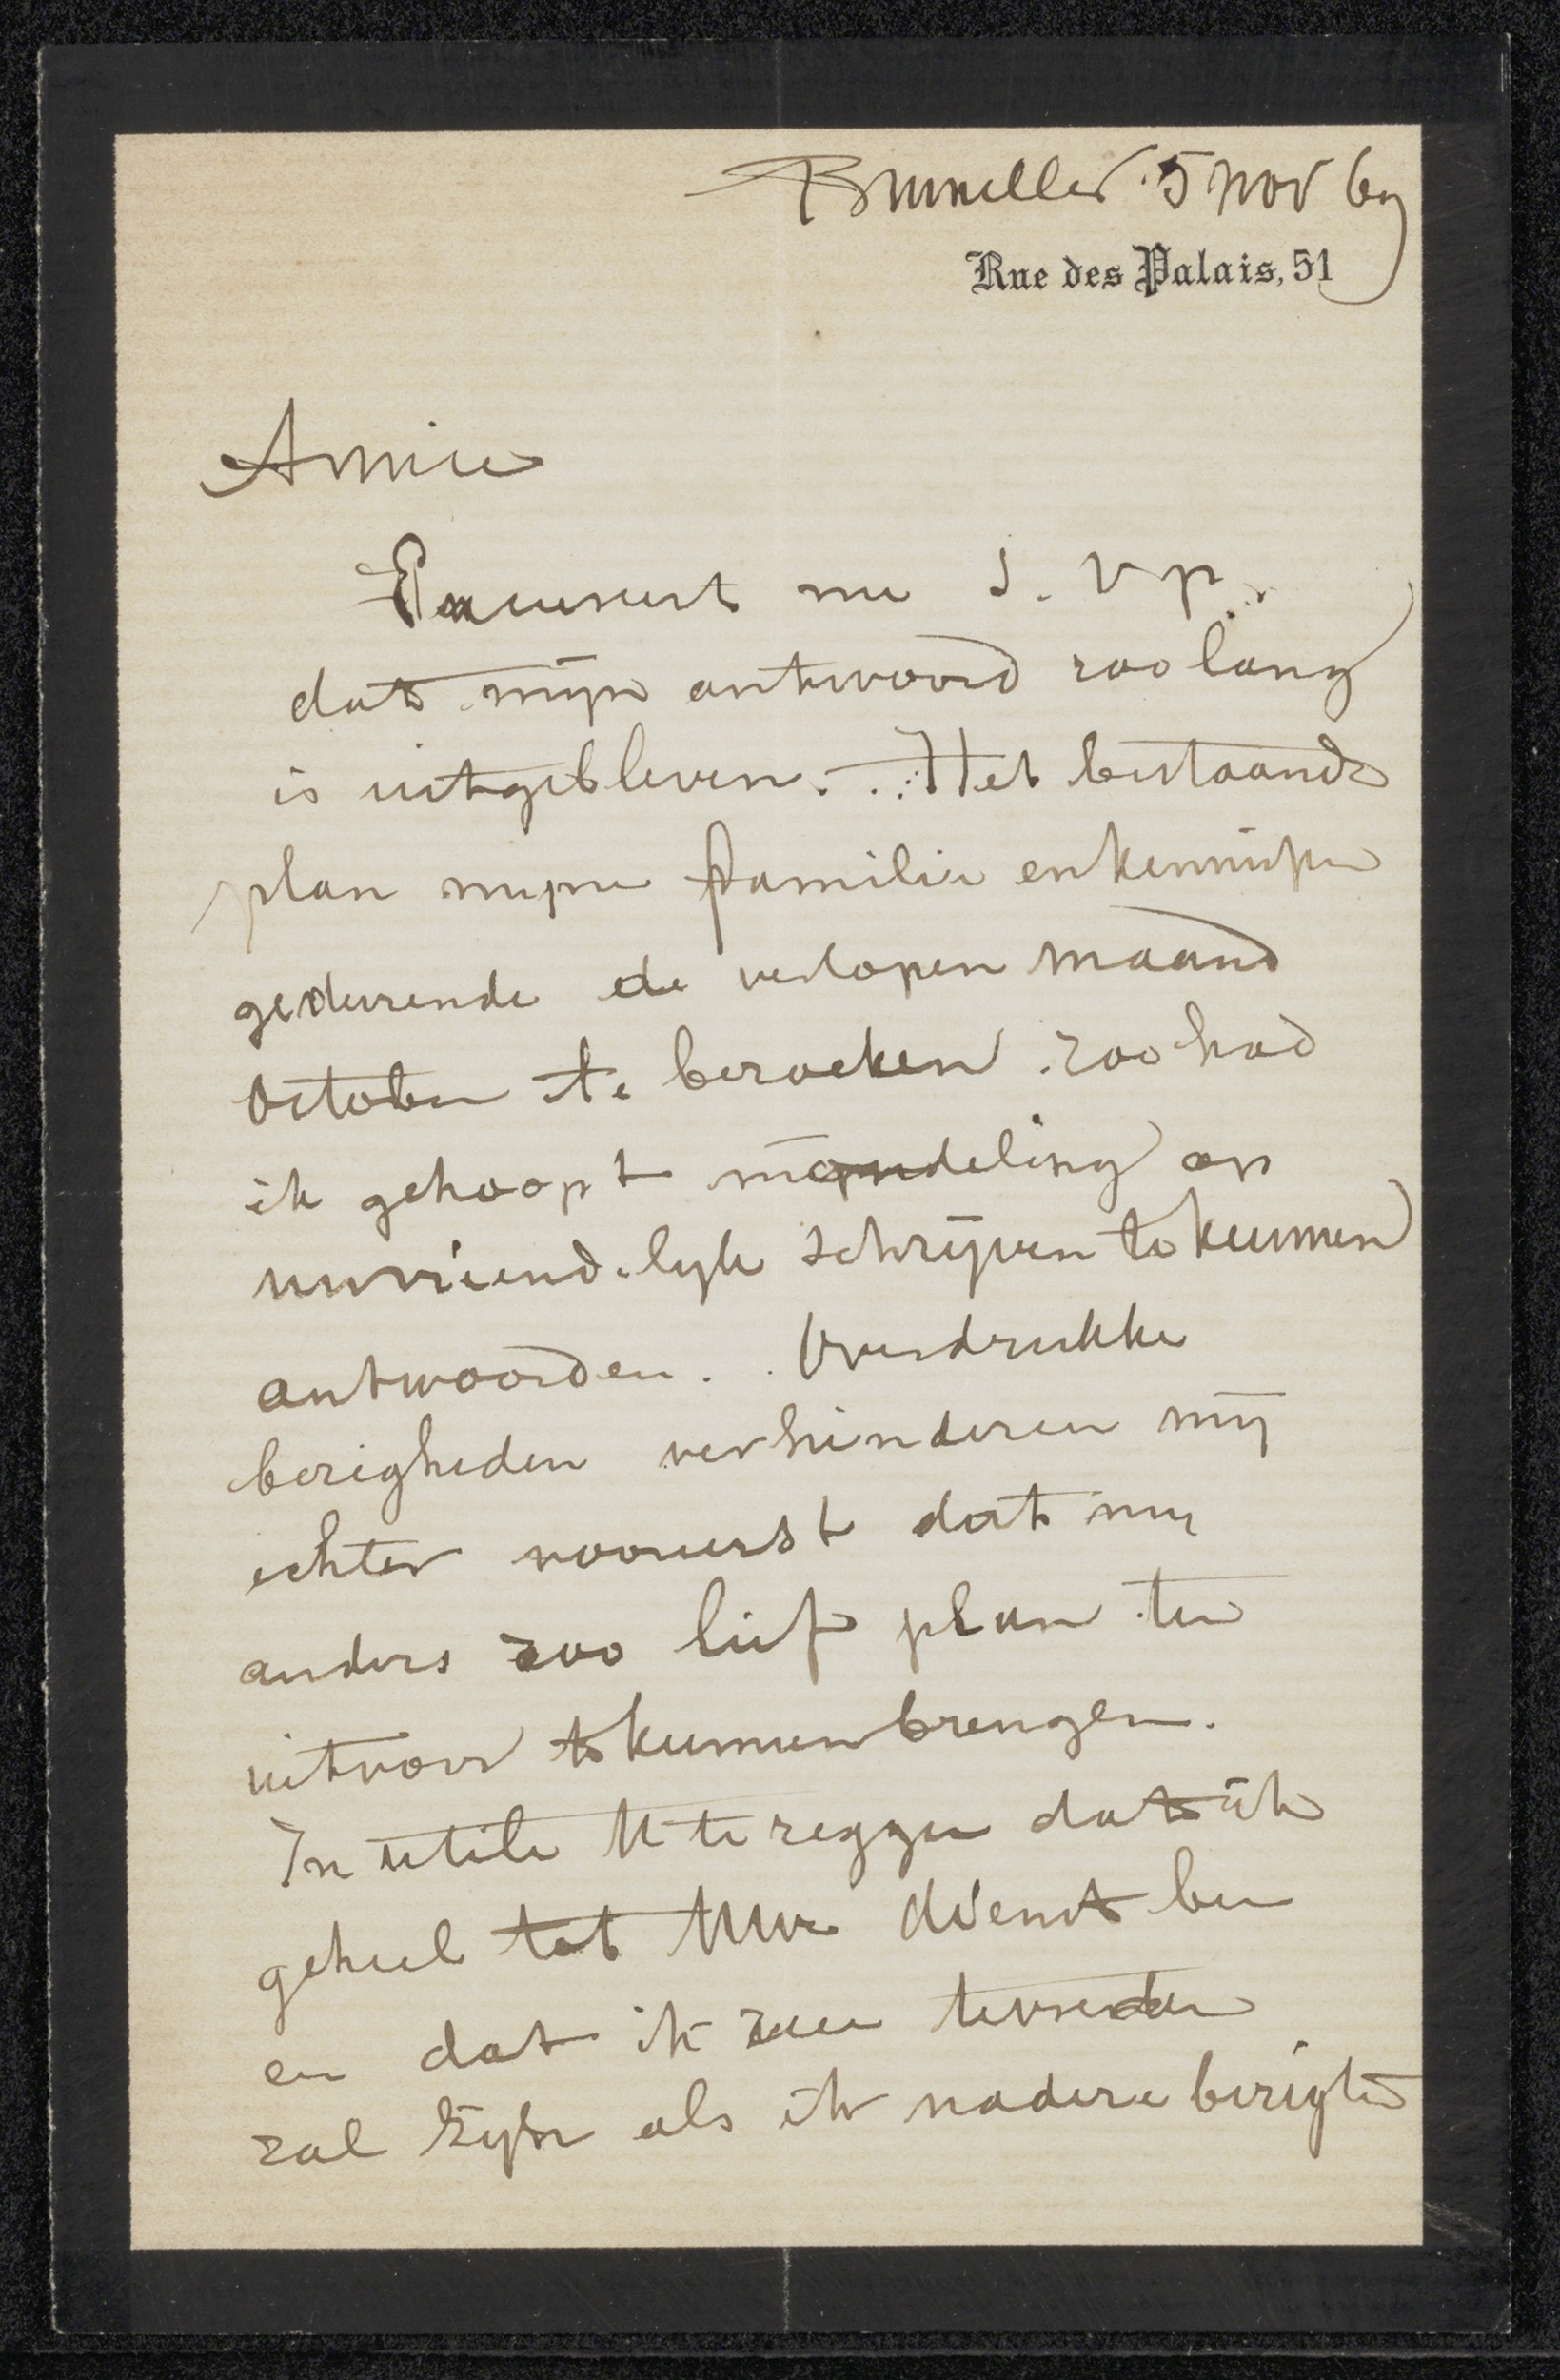 Bruxelles 5 Nov 69
Rue des Palais, 51
Amice
Excuseert me S. V p.
dat mijn antwoord zoo lang
is uitgebleven. Het bestaande
plan mijne familie en kennissen
gedurende de verlopen maand
October te bezoeken zoo had
ik gehoopt mondeling op
uw vriendelyk schrijven te kunnen
antwoorden. Overdrukke
bezigheden verhinderen mij
echter vooreerst dat my
anders zoo lief plan ten
uitvoer te kunnen brengen.
Inutile U te zeggen dat ik
geheel tot Uwe dienst ben
en dat ik zeer tevreden
zal zijn als ik nadere berigten